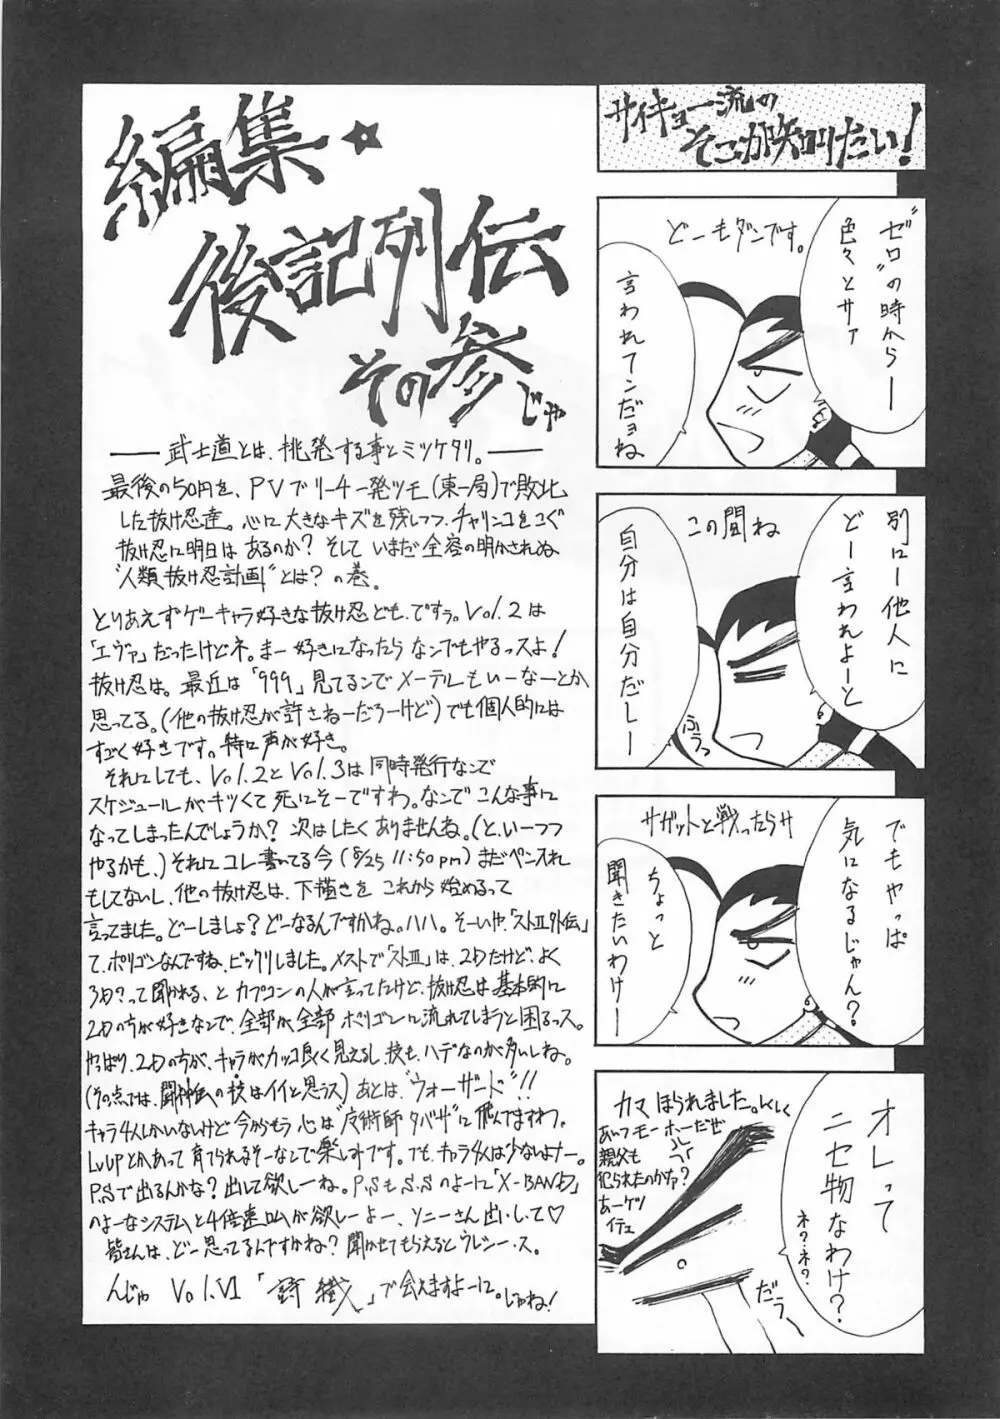 編集☆
後記列伝
その参じゃ
――武士道とは、挑発する事とミツケタリ。――
最後の50円を、PVでリーチ一発ツモ(東一局)で敗北
した抜け忍達。心に大きなキズを残しつつ、チャリンコをこぐ
抜け忍に明日はあるのか? そして いまだ全容の明かされぬ
“人類抜け忍計画”とは? の巻。
とりあえずゲーキャラ好きな抜け忍ども、ですぅ。Vol.2は
「エヴァ」だったけどネ。まー好きになったらなンでもやるっスよ!
抜け忍は。最近は「999」見てるンでメーテルもいーなーとか
思ってる。(他の抜け忍が許さねーだろーけど)でも個人的には
すごく好きです。特に声が好き。
それにしても、Vol.2とVol.3は同時発行なンで
スケジュールがキツくて死にそーですわ。なンでこんな事に
なってしまったんでしょうか? 次はしたくありませんね。(と、いーつつ
やるかも、)それにコレ書いてる今(8/25 11:50pm)まだペン入れ
もしてないし、他の抜け忍は、下描きをこれから始めるって
言ってました。どーしましょ?どーなるんですかね。ハハ。そーいや、「ストⅡ外伝」
て、ポリゴンなんですね、ビックリしました。メストで「ストⅢ」は、2Dだけど、よく
3D?って聞かれる、とカプコンの人が言ってたけど、抜け忍は基本的に
2Dの方が好きなンで、全部が全部ポリゴンに流れてしまうと困るっス。
やっぱり2Dの方が、キャラがカッコ良く見えるし、技も、ハデなのが多いしね。
(その点では、闘神伝の技はイイと思うス)あとは、“ウォーザード”!!
キャラ4人しかいないけど今からもう心は“魔術師タバサ”に飛んでますわ。
LvUPとかあって育てられるそーなンで楽しみです。でも、キャラ4人は少ないよナー。
P.Sで出るんかな? 出して欲しーね。P.SもS.Sのよーに「X-BAND」
のよーなシステムと4倍速ロムが欲しーよー、ソニーさん出しして♡
皆さんは、どー思ってるんですかね? 聞かせてもらえるとウレシース。
んじゃ Vol.Ⅵ「」で会えますよーに。じゃね!
サイキョー流の
そこが知りたい!
“ゼロ”の時からー
色々とサァ
どーもダンです。
言われてンだョね
別にー他人に
どー言われよーと
この間ね
自分は自分だしー
ふぅっ
でもやっぱ
気になるじゃん?
サガットと戦ったらサ
ちょっと
聞きたいわけー
オレって
ニセ物なわけ?
ネ?ネ?
カマほられました。しくしく
あいつモーホーだぜ
親父も
犯られたのかァ?
あーケツ
イテェ
だぅー